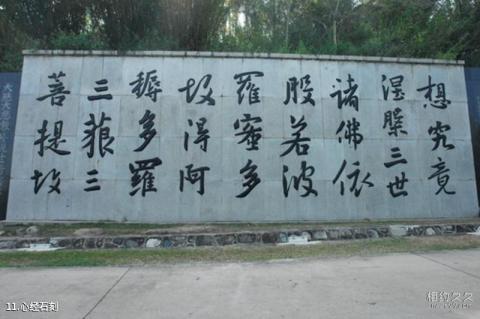 想究竟
涅槃三世
諸佛依
般若波
羅蜜多
故得阿
耨多羅
三藐三
菩提故
11.心经石刻
相约久久